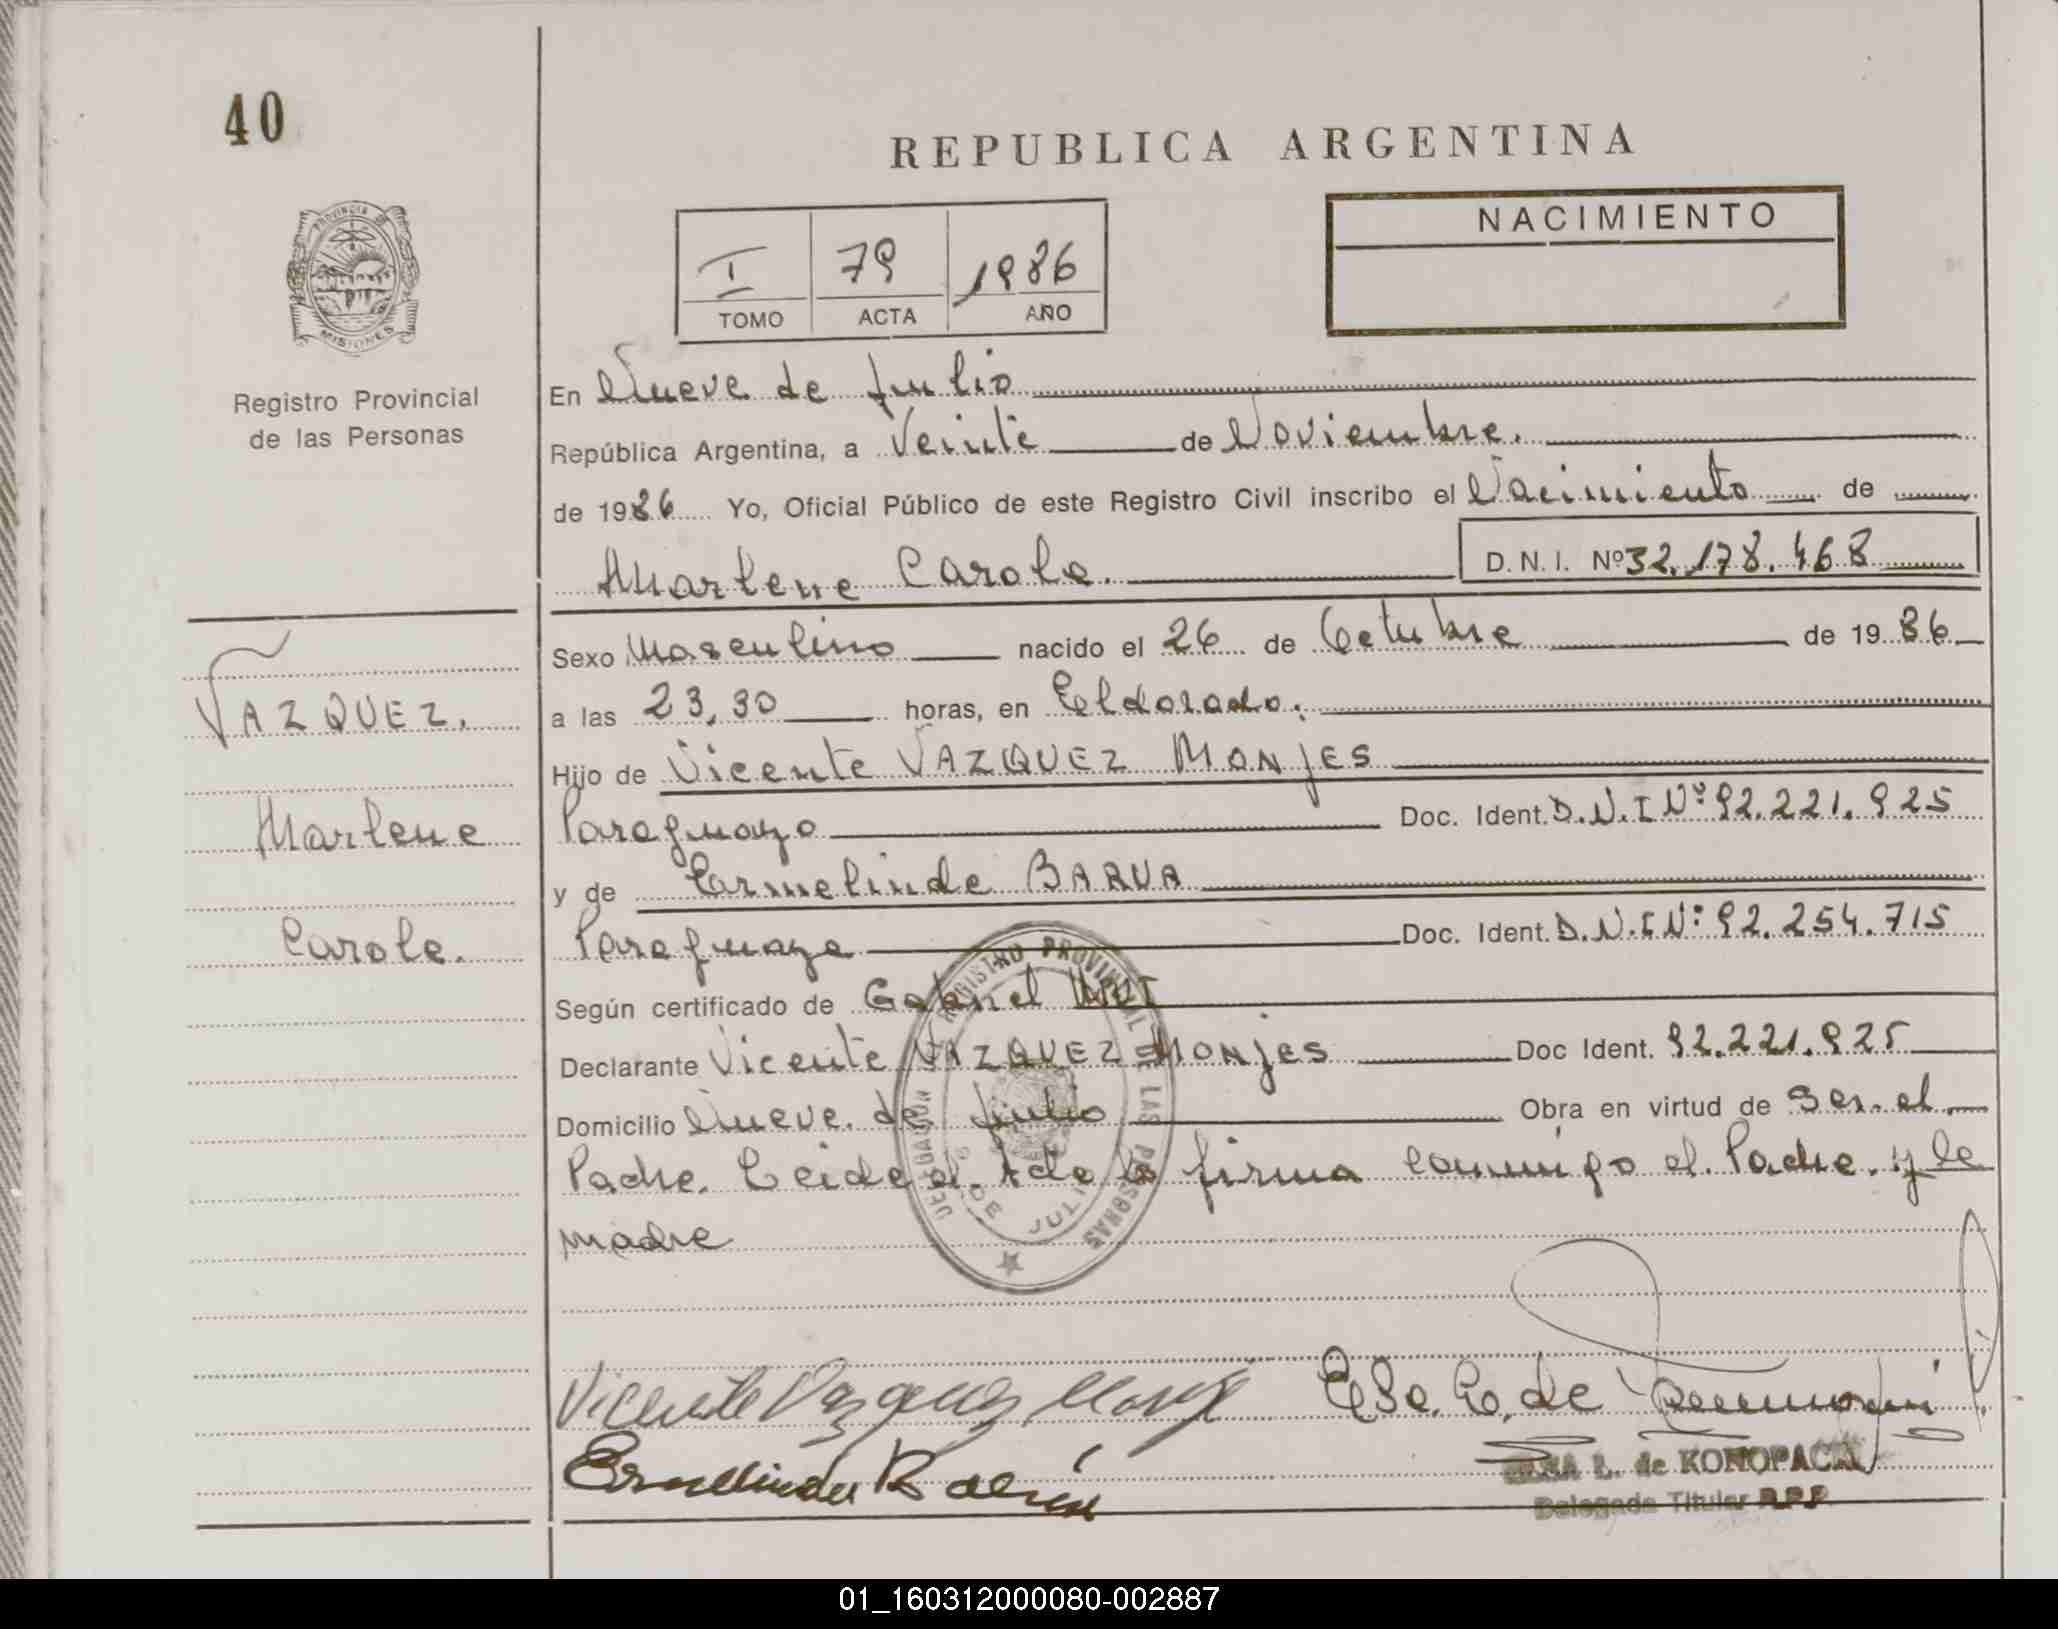 40
REPUBLICA ARGENTINA
PROVINCIA DE
MISIONES
NACIMIENTO
I 79 1986
TOMO ACTA AÑO
Registro Provincial
de las Personas
En Nueve de Julio
República Argentina, a Veinte de Noviembre.
de 1986 Yo, Oficial Público de este Registro Civil inscribo el Nacimiento de
Marlene Carola. D.N.I. Nº 32.178.468
Sexo Masculino nacido el 26 de Octubre de 1986
VAZQUEZ.
a las 23,30 horas, en Eldorado.
Hijo de Vicente VAZQUEZ MONJES
Marlene
Paraguayo Doc. Ident. D.N.I Nº 92.221.925
y de Carmelinda BARUA
Carola.
Paraguaya Doc. Ident. D.N.I Nº: 92.254.715
Según certificado de Gabriel
Declarante Vicente VAZQUEZ MONJES Doc Ident. 92.221.925
Domicilio Nueve de Julio Obra en virtud de Ser el
Padre. Leida el Acta la firma conmigo el Padre y la
madre
DELEGACION REGISTRO PROVINCIAL DE LAS PERSONAS
9 DE JULIO
Vicente Vazquez
L. de KONOPACKI
Delegada Titular R.P.P.
01_160312000080-002887